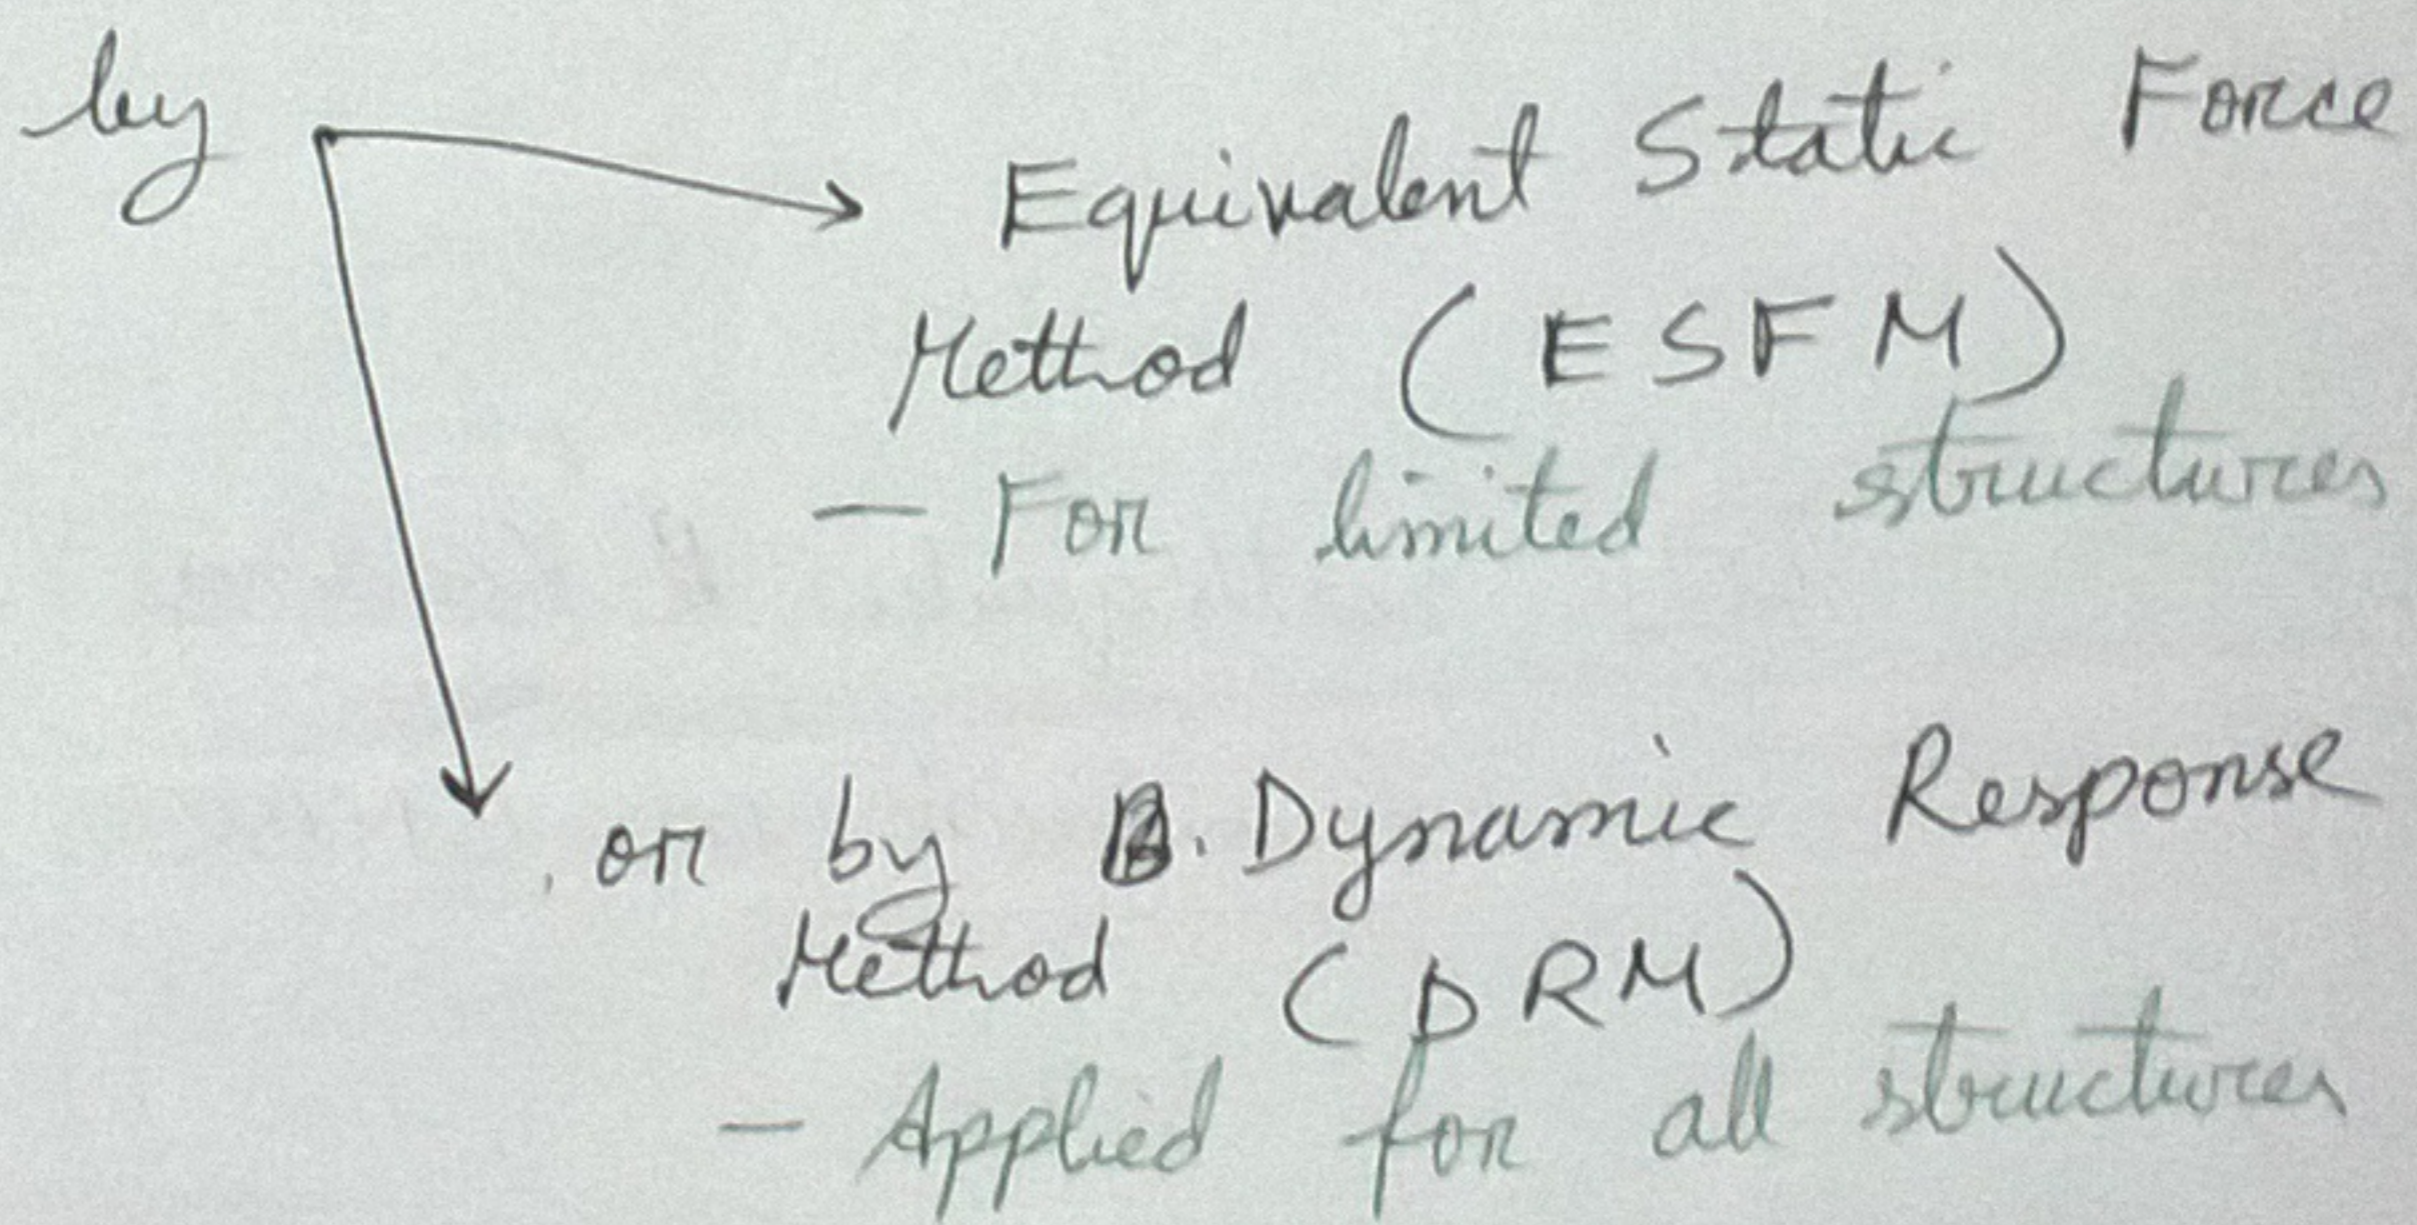 by
Equivalent Static Force
Method (ESFM)
- For limited structures
or by B. Dynamic Response
Method (DRM)
- Applied for all structures